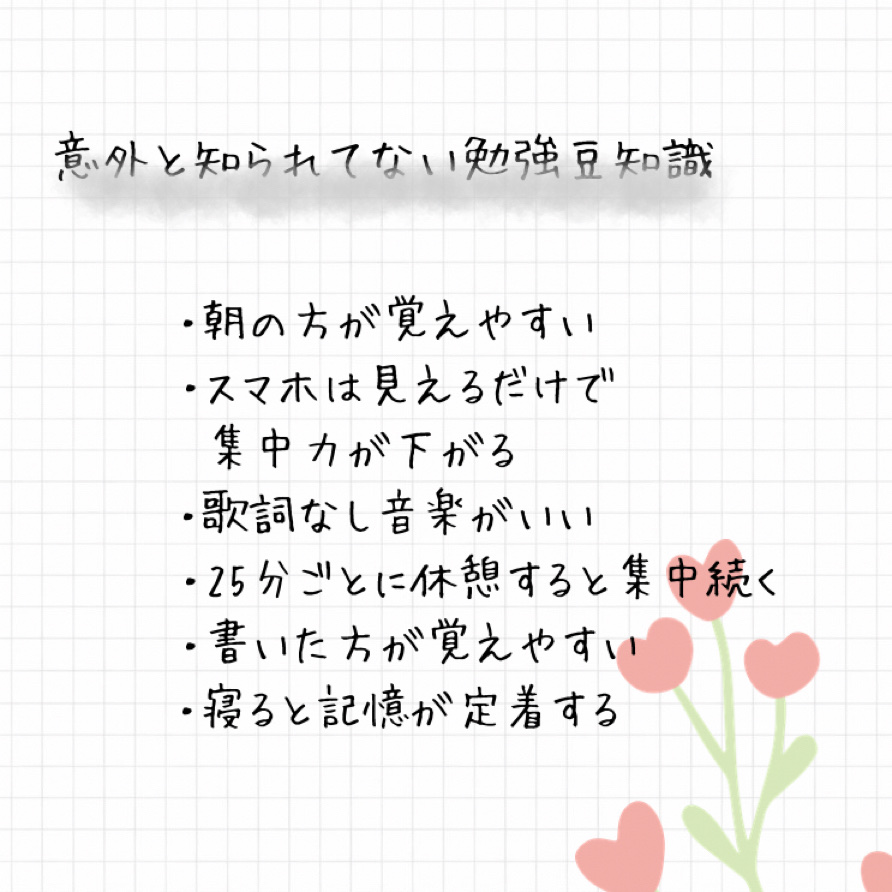 意外と知られてない勉強豆知識
・朝の方が覚えやすい
・スマホは見えるだけで
集中力が下がる
・歌詞なし音楽がいい
・25分ごとに休憩すると集中続く
・書いた方が覚えやすい
・寝ると記憶が定着する